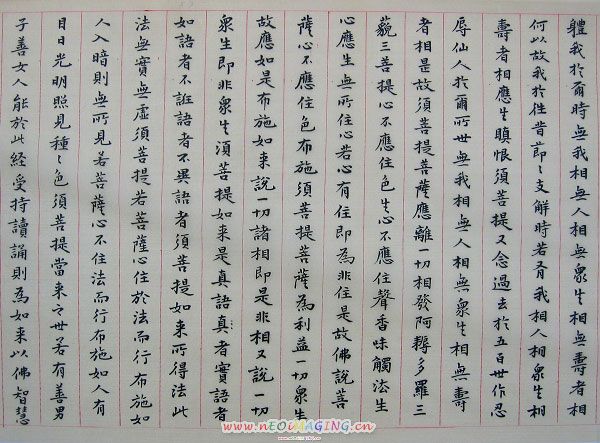 體我於爾時無我相無人相無眾生相無壽者相
何以故我於往昔節〻支解時若有我相人相眾生相
壽者相應生瞋恨須菩提又念過去於五百世作忍
辱仙人於爾所世無我相無人相無眾生相無壽
者相是故須菩提菩薩應離一切相發阿耨多羅三
藐三菩提心不應住色生心不應住聲香味觸法生
心應生無所住心若心有住即為非住是故佛說菩
薩心不應住色布施須菩提菩薩為利益一切眾生
故應如是布施如来說一切諸相即是非相又說一切
眾生即非眾生須菩提如来是真語真者實語者
如語者不誑語者不異語者須菩提如来所得法此
法無實無虛須菩提若菩薩心住於法而行布施如
人入暗則無所見若菩薩心不住法而行布施如人有
目日光明照見種〻色須菩提當来之世若有善男
子善女人能於此經受持讀誦則為如来以佛智慧
www.nEOiMAGING.cn